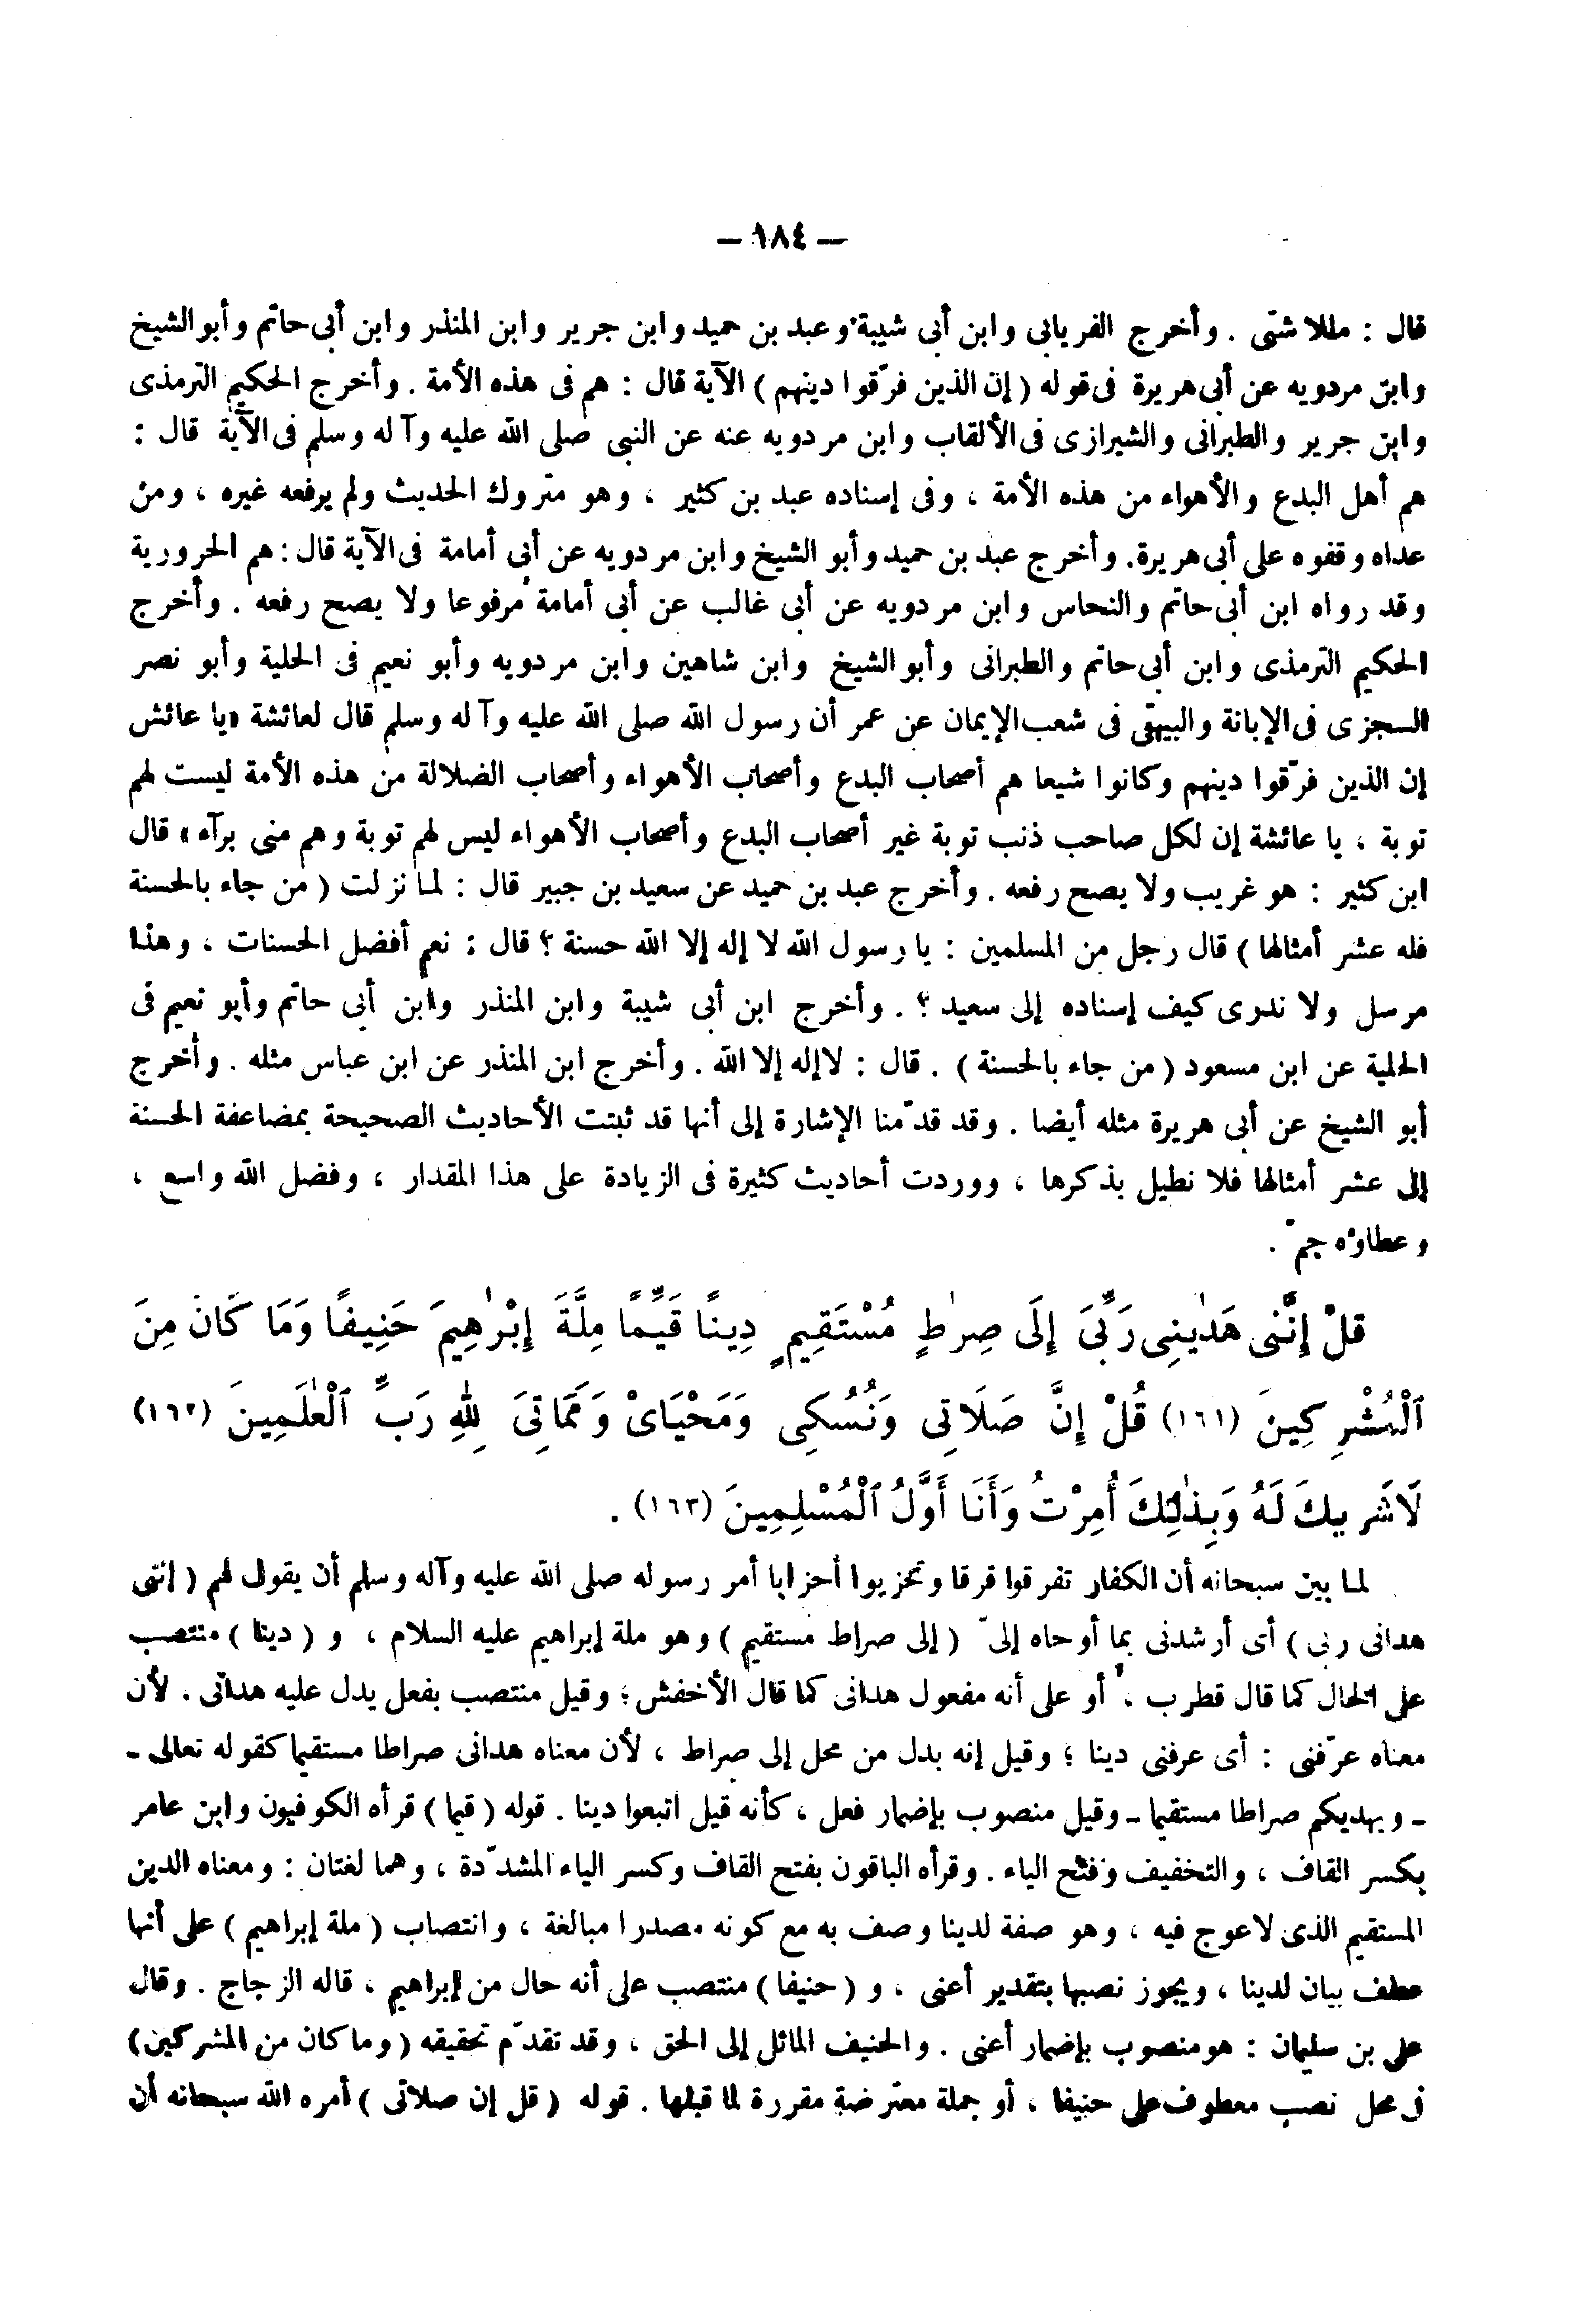 — ١٨٤ —
قال : مللا شتى . وأخرج الفريابى وابن أبى شيبة وعبد بن حميد وابن جرير وابن المنذر وابن أبى حاتم وأبو الشيخ
وابن مردويه عن أبى هريرة فى قوله ( إن الذين فرّقوا دينهم ) الآية قال : هم فى هذه الأمة . وأخرج الحكيم الترمذى
وابن جرير والطبرانى والشيرازى فى الألقاب وابن مردويه عنه عن النبى صلى الله عليه وآله وسلم فى الآية قال :
هم أهل البدع والأهواء من هذه الأمة ، وفى إسناده عبد بن كثير ، وهو متروك الحديث ولم يرفعه غيره ، ومن
عداه وقفوه على أبى هريرة. وأخرج عبد بن حميد وأبو الشيخ وابن مردويه عن أبى أمامة فى الآية قال : هم الحرورية
وقد رواه ابن أبى حاتم والنحاس وابن مردويه عن أبى غالب عن أبى أمامة مرفوعا ولا يصح رفعه . وأخرج
الحكيم الترمذى وابن أبى حاتم والطبرانى وأبو الشيخ وابن شاهين وابن مردويه وأبو نعيم فى الحلية وأبو نصر
السجزى فى الإبانة والبيهقى فى شعب الإيمان عن عمر أن رسول الله صلى الله عليه وآله وسلم قال لعائشة «يا عائش
إن الذين فرّقوا دينهم وكانوا شيعا هم أصحاب البدع وأصحاب الأهواء وأصحاب الضلالة من هذه الأمة ليست لهم
توبة ، يا عائشة إن لكل صاحب ذنب توبة غير أصحاب البدع وأصحاب الأهواء ليس لهم توبة وهم منى برآء» قال
ابن كثير : هو غريب ولا يصح رفعه . وأخرج عبد بن حميد عن سعيد بن جبير قال : لما نزلت ( من جاء بالحسنة
فله عشر أمثالها ) قال رجل من المسلمين : يا رسول الله لا إله إلا الله حسنة ؟ قال : نعم أفضل الحسنات ، وهذا
مرسل ولا ندرى كيف إسناده إلى سعيد ؟ . وأخرج ابن أبى شيبة وابن المنذر وابن أبى حاتم وأبو نعيم فى
الحلية عن ابن مسعود ( من جاء بالحسنة ) . قال : لا إله إلا الله . وأخرج ابن المنذر عن ابن عباس مثله . وأخرج
أبو الشيخ عن أبى هريرة مثله أيضا . وقد قدّمنا الإشارة إلى أنها قد ثبتت الأحاديث الصحيحة بمضاعفة الحسنة
إلى عشر أمثالها فلا نطيل بذكرها ، ووردت أحاديث كثيرة فى الزيادة على هذا المقدار ، وفضل الله واسع ،
وعطاؤه جمّ .
قُلْ إِنَّنِى هَدَٰينِى رَبِّىَ إِلَى صِرَٰطٍ مُسْتَقِيمٍ دِينًا قَيِّمًا مِلَّةَ إِبْرَٰهِيمَ حَنِيفًا وَمَا كَانَ مِنَ
ٱلْمُشْرِكِينَ (١٦١) قُلْ إِنَّ صَلَاتِى وَنُسُكِى وَمَحْيَاىْ وَمَمَاتِىَ لِلّٰهِ رَبِّ ٱلْعَٰلَمِينَ (١٦٢)
لَا شَرِيكَ لَهُ وَبِذَٰلِكَ أُمِرْتُ وَأَنَا أَوَّلُ ٱلْمُسْلِمِينَ (١٦٣) .
لما بين سبحانه أن الكفار تفرقوا فرقا وتحزبوا أحزابا أمر رسوله صلى الله عليه وآله وسلم أن يقول لهم ( إننى
هدانى ربى ) أى أرشدنى بما أوحاه إلىّ ( إلى صراط مستقيم ) وهو ملة إبراهيم عليه السلام ، و ( دينا ) منتصب
على الحال كما قال قطرب ، أو على أنه مفعول هدانى كما قال الأخفش ؛ وقيل منتصب بفعل يدل عليه هدانى . لأن
معناه عرّفنى : أى عرفنى دينا ؛ وقيل إنه بدل من محل إلى صراط ، لأن معناه هدانى صراطا مستقيما كقوله تعالى -
- ويهديكم صراطا مستقيما - وقيل منصوب بإضمار فعل ، كأنه قيل اتبعوا دينا . قوله ( قيما ) قرأه الكوفيون وابن عامر
بكسر القاف ، والتخفيف وفتح الياء . وقرأه الباقون بفتح القاف وكسر الياء المشدّدة ، وهما لغتان : ومعناه الدين
المستقيم الذى لا عوج فيه ، وهو صفة لدينا وصف به مع كونه مصدرا مبالغة ، وانتصاب ( ملة إبراهيم ) على أنها
عطف بيان لدينا ، ويجوز نصبها بتقدير أعنى ، و ( حنيفا ) منتصب على أنه حال من إبراهيم ، قاله الزجاج . وقال
على بن سليمان : هو منصوب بإضمار أعنى . والحنيف المائل إلى الحق ، وقد تقدّم تحقيقه ( وما كان من المشركين )
فى محل نصب معطوف على حنيفا ، أو جملة معترضة مقررة لما قبلها . قوله ( قل إن صلاتى ) أمره الله سبحانه أن